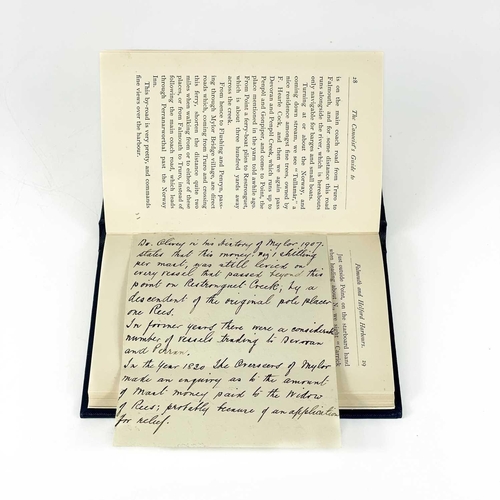 28 The Canoeist's Guide to
is on the main coach road from Truro to
Falmouth, and for some distance this road
runs alongside the river, which is hereabouts
only navigable for barges and small boats.
Turning at or about the Norway, and
coming down stream, we see "Tullimar," a
nice residence amongst fine trees, owned by
F. Hearle Cock, and then we again pass
Devoran and Penpol Creek, which runs up to
Penpol and Goonpiper, and come to Point, the
place mentioned in the yarn told awhile ago.
From Point a ferry-boat plies to Restronguet,
which is about three hundred yards away
across the creek.
From hence to Flushing and Penryn, pass-
ing through Mylor Bridge village, are direct
roads which, coming from Truro and crossing
this ferry, shorten the distance quite two
miles when walking from or to either of these
places, or from Falmouth to Truro, instead of
following the main coach road, which leads
through Perranarworthal past the Norway
Inn.
This by-road is very pretty, and commands
fine views over the harbour.
Falmouth and Helford Harbours. 29
Just outside Point, on the starboard hand
when heading about N., we sight "Carrick
Dr. Olivey in his History of Mylor 1907.
states that this money: viz 1 shilling
per mast, was still levied on
every vessel that passed beyond this
point on Restronguet Creek; by a
descendent of the original pole placer
one Rees.
In former years there were a considerable
number of vessels trading to Devoran
and Perran.
In the year 1820 The Overseers of Mylor
made an enquiry as to the amount
of Mast money paid to the Widow
of Rees; probably because of an application
for relief.